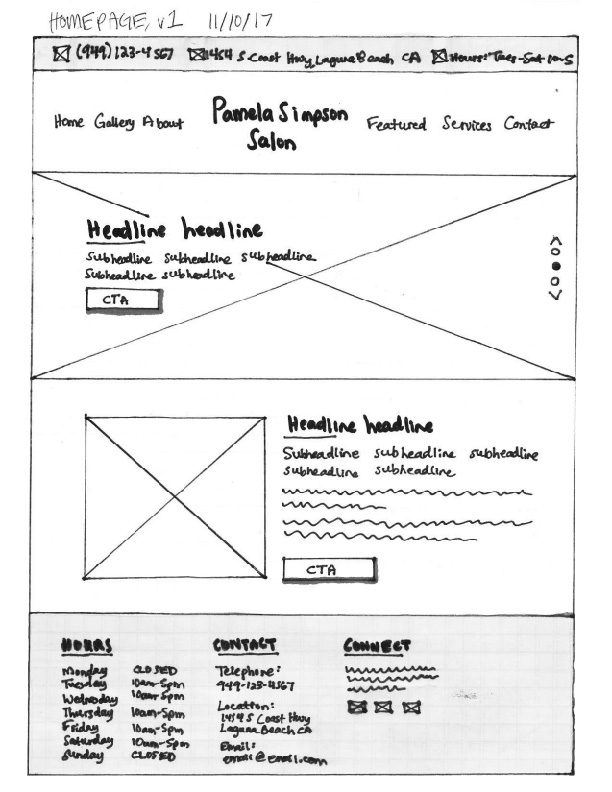 HOMEPAGE, v1 11/10/17
(949)123-4567 1454 S. Coast Hwy, Laguna Beach CA Hours: Tues-Sat 10-5
Home Gallery About Pamela Simpson Salon Featured Services Contact
Headline headline
Subheadline subheadline subheadline
Subheadline subheadline
CTA
Headline headline
Subheadline subheadline subheadline
subheadline subheadline
CTA
HOURS
Monday CLOSED
Tuesday 10am-5pm
Wednesday 10am-5pm
Thursday 10am-5pm
Friday 10am-5pm
Saturday 10am-5pm
Sunday CLOSED
CONTACT
Telephone:
949-123-4567
Location:
1454 S Coast Hwy
Laguna Beach CA
Email:
email@email.com
CONNECT